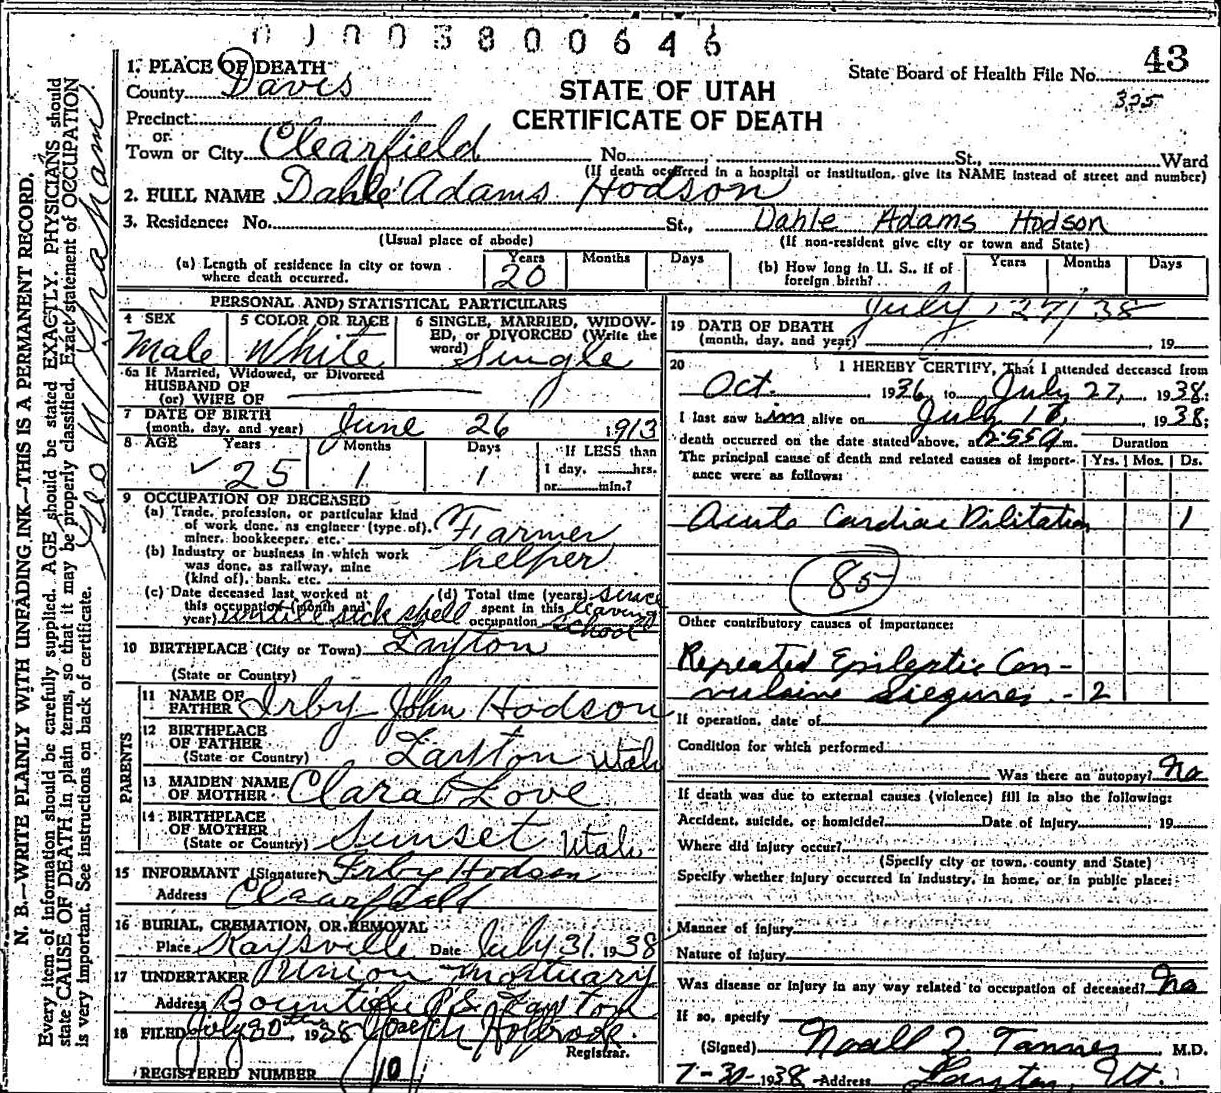 0 1 0 0 3 8 0 0 6 4 6
State Board of Health File No. 43
325
1. PLACE OF DEATH
County Davis
STATE OF UTAH
CERTIFICATE OF DEATH
Precinct
or
Town or City Clearfield No. St., Ward
(If death occurred in a hospital or institution, give its NAME instead of street and number)
2. FULL NAME Dahle Adams Hodson
3. Residence: No. St., Dahle Adams Hodson
(Usual place of abode) (If non-resident give city or town and State)
(a) Length of residence in city or town where death occurred. Years 20 Months Days
(b) How long in U. S., if of foreign birth? Years Months Days
PERSONAL AND STATISTICAL PARTICULARS
4 SEX Male
5 COLOR OR RACE White
6 SINGLE, MARRIED, WIDOWED, or DIVORCED (Write the word) Single
6a If Married, Widowed, or Divorced
HUSBAND OF
(or) WIFE OF
7 DATE OF BIRTH
(month, day, and year) June 26 1913
8 AGE Years 25 Months 1 Days 1 If LESS than 1 day, hrs. or min.?
9 OCCUPATION OF DECEASED
(a) Trade, profession, or particular kind of work done, as engineer (type of), miner, bookkeeper, etc. Farmer
(b) Industry or business in which work was done, as railway, mine (kind of), bank, etc. helper
(c) Date deceased last worked at this occupation (month and year) untill sick spell
(d) Total time (years) spent in this occupation since leaving school
10 BIRTHPLACE (City or Town) Layton
(State or Country)
PARENTS
11 NAME OF FATHER Irby John Hodson
12 BIRTHPLACE OF FATHER
(State or Country) Layton Utah
13 MAIDEN NAME OF MOTHER Clara Love
14 BIRTHPLACE OF MOTHER
(State or Country) Sunset Utah
15 INFORMANT (Signature) Irby Hodson
Address Clearfield
16 BURIAL, CREMATION, OR REMOVAL
Place Kaysville Date July 31, 1938
17 UNDERTAKER Union Mortuary
Address Bountiful & Layton
18 FILED July 30th 1938 Holbrook
Registrar.
REGISTERED NUMBER 10
July 27/38
19 DATE OF DEATH
(month, day, and year) , 19
20 I HEREBY CERTIFY, That I attended deceased from
Oct. 1936, to July 27, 1938;
I last saw him alive on July 16, 1938;
death occurred on the date stated above, at m.
Duration
The principal cause of death and related causes of importance were as follows: Yrs. Mos. Ds.
Acute Cardiac Dilitation 1
85
Other contributory causes of importance:
Repeated Epileptic Con-
vulsive Siezures - 2
If operation, date of
Condition for which performed
Was there an autopsy? No
If death was due to external causes (violence) fill in also the following:
Accident, suicide, or homicide? Date of injury , 19
Where did injury occur?
(Specify city or town, county and State)
Specify whether injury occurred in industry, in home, or in public place:
Manner of injury
Nature of injury
Was disease or injury in any way related to occupation of deceased? No
If so, specify
(Signed) Noall Z Tanner M.D.
7-30-1938 Address Layton, Ut.
N. B.—WRITE PLAINLY WITH UNFADING INK—THIS IS A PERMANENT RECORD.
Every item of information should be carefully supplied. AGE should be stated EXACTLY. PHYSICIANS should
state CAUSE OF DEATH in plain terms, so that it may be properly classified. Exact statement of OCCUPATION
is very important. See instructions on back of certificate.